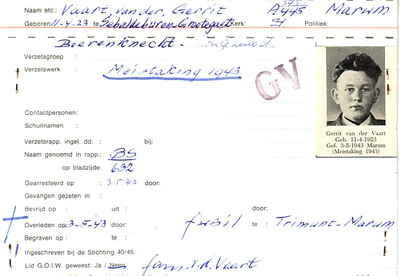 Naam etc.: Vaart, van der, Gerrit A445 Marum
Geboren: 11-4.23 te Sebaldeburen Grootegast Kerk: Politiek:
Boerenknecht -
Verzetsgroep :
Verzetswerk : Meistaking 1943
GV
Contactpersonen:
Schuilnaam :
Gerrit van der Vaart
Geb. 11-4-1923
Gef. 3-5-1943 Marum
(Meistaking 1943)
Verzetsrapp. ingel. dd. : bij:
Naam genoemd in rapp.: BS
op bladzijde: 632
Gearresteerd op : 3.5.43 door:
Gevangen gezeten in :
Bevrijd op : uit : door:
Overleden op : 3-5-43 door: fusil te : Trimunt-Marum
Begraven op : te :
Ingeschreven bij de Stichting 40/45:
Lid G.O.I.W. geweest: Ja / Neen fam. v.d. Vaart